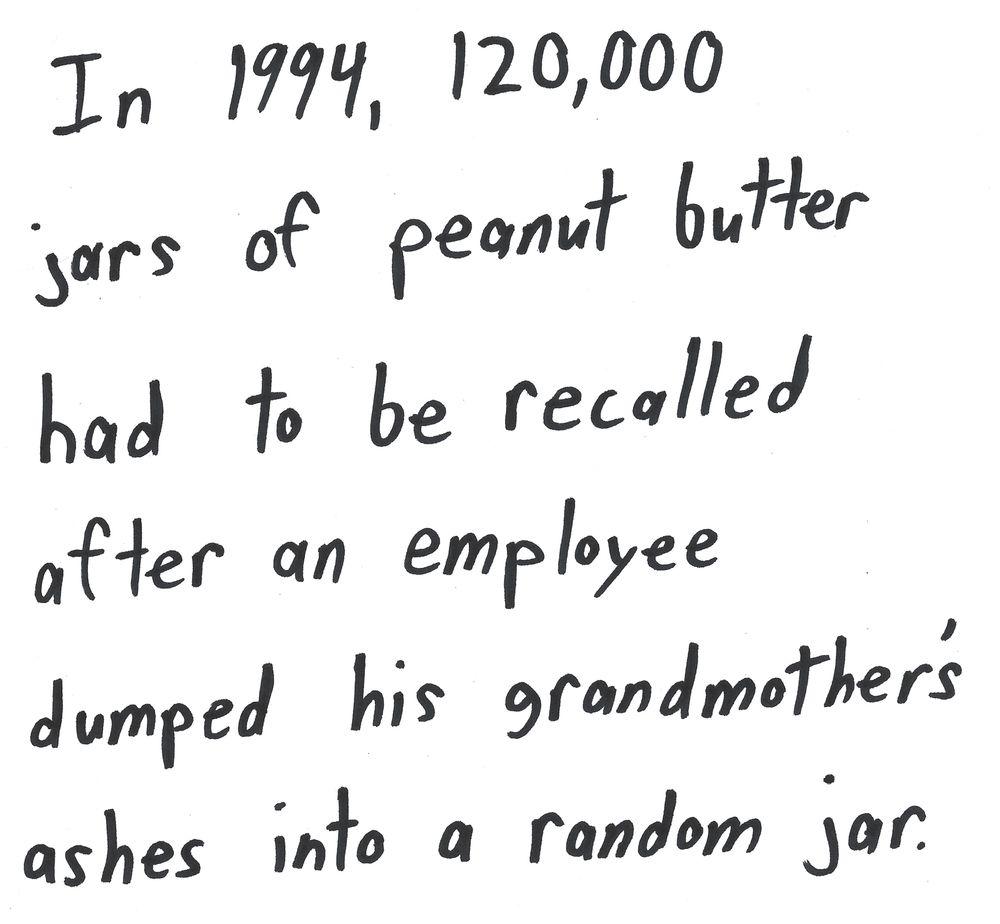 In 1994, 120,000
jars of peanut butter
had to be recalled
after an employee
dumped his grandmother's
ashes into a random jar.